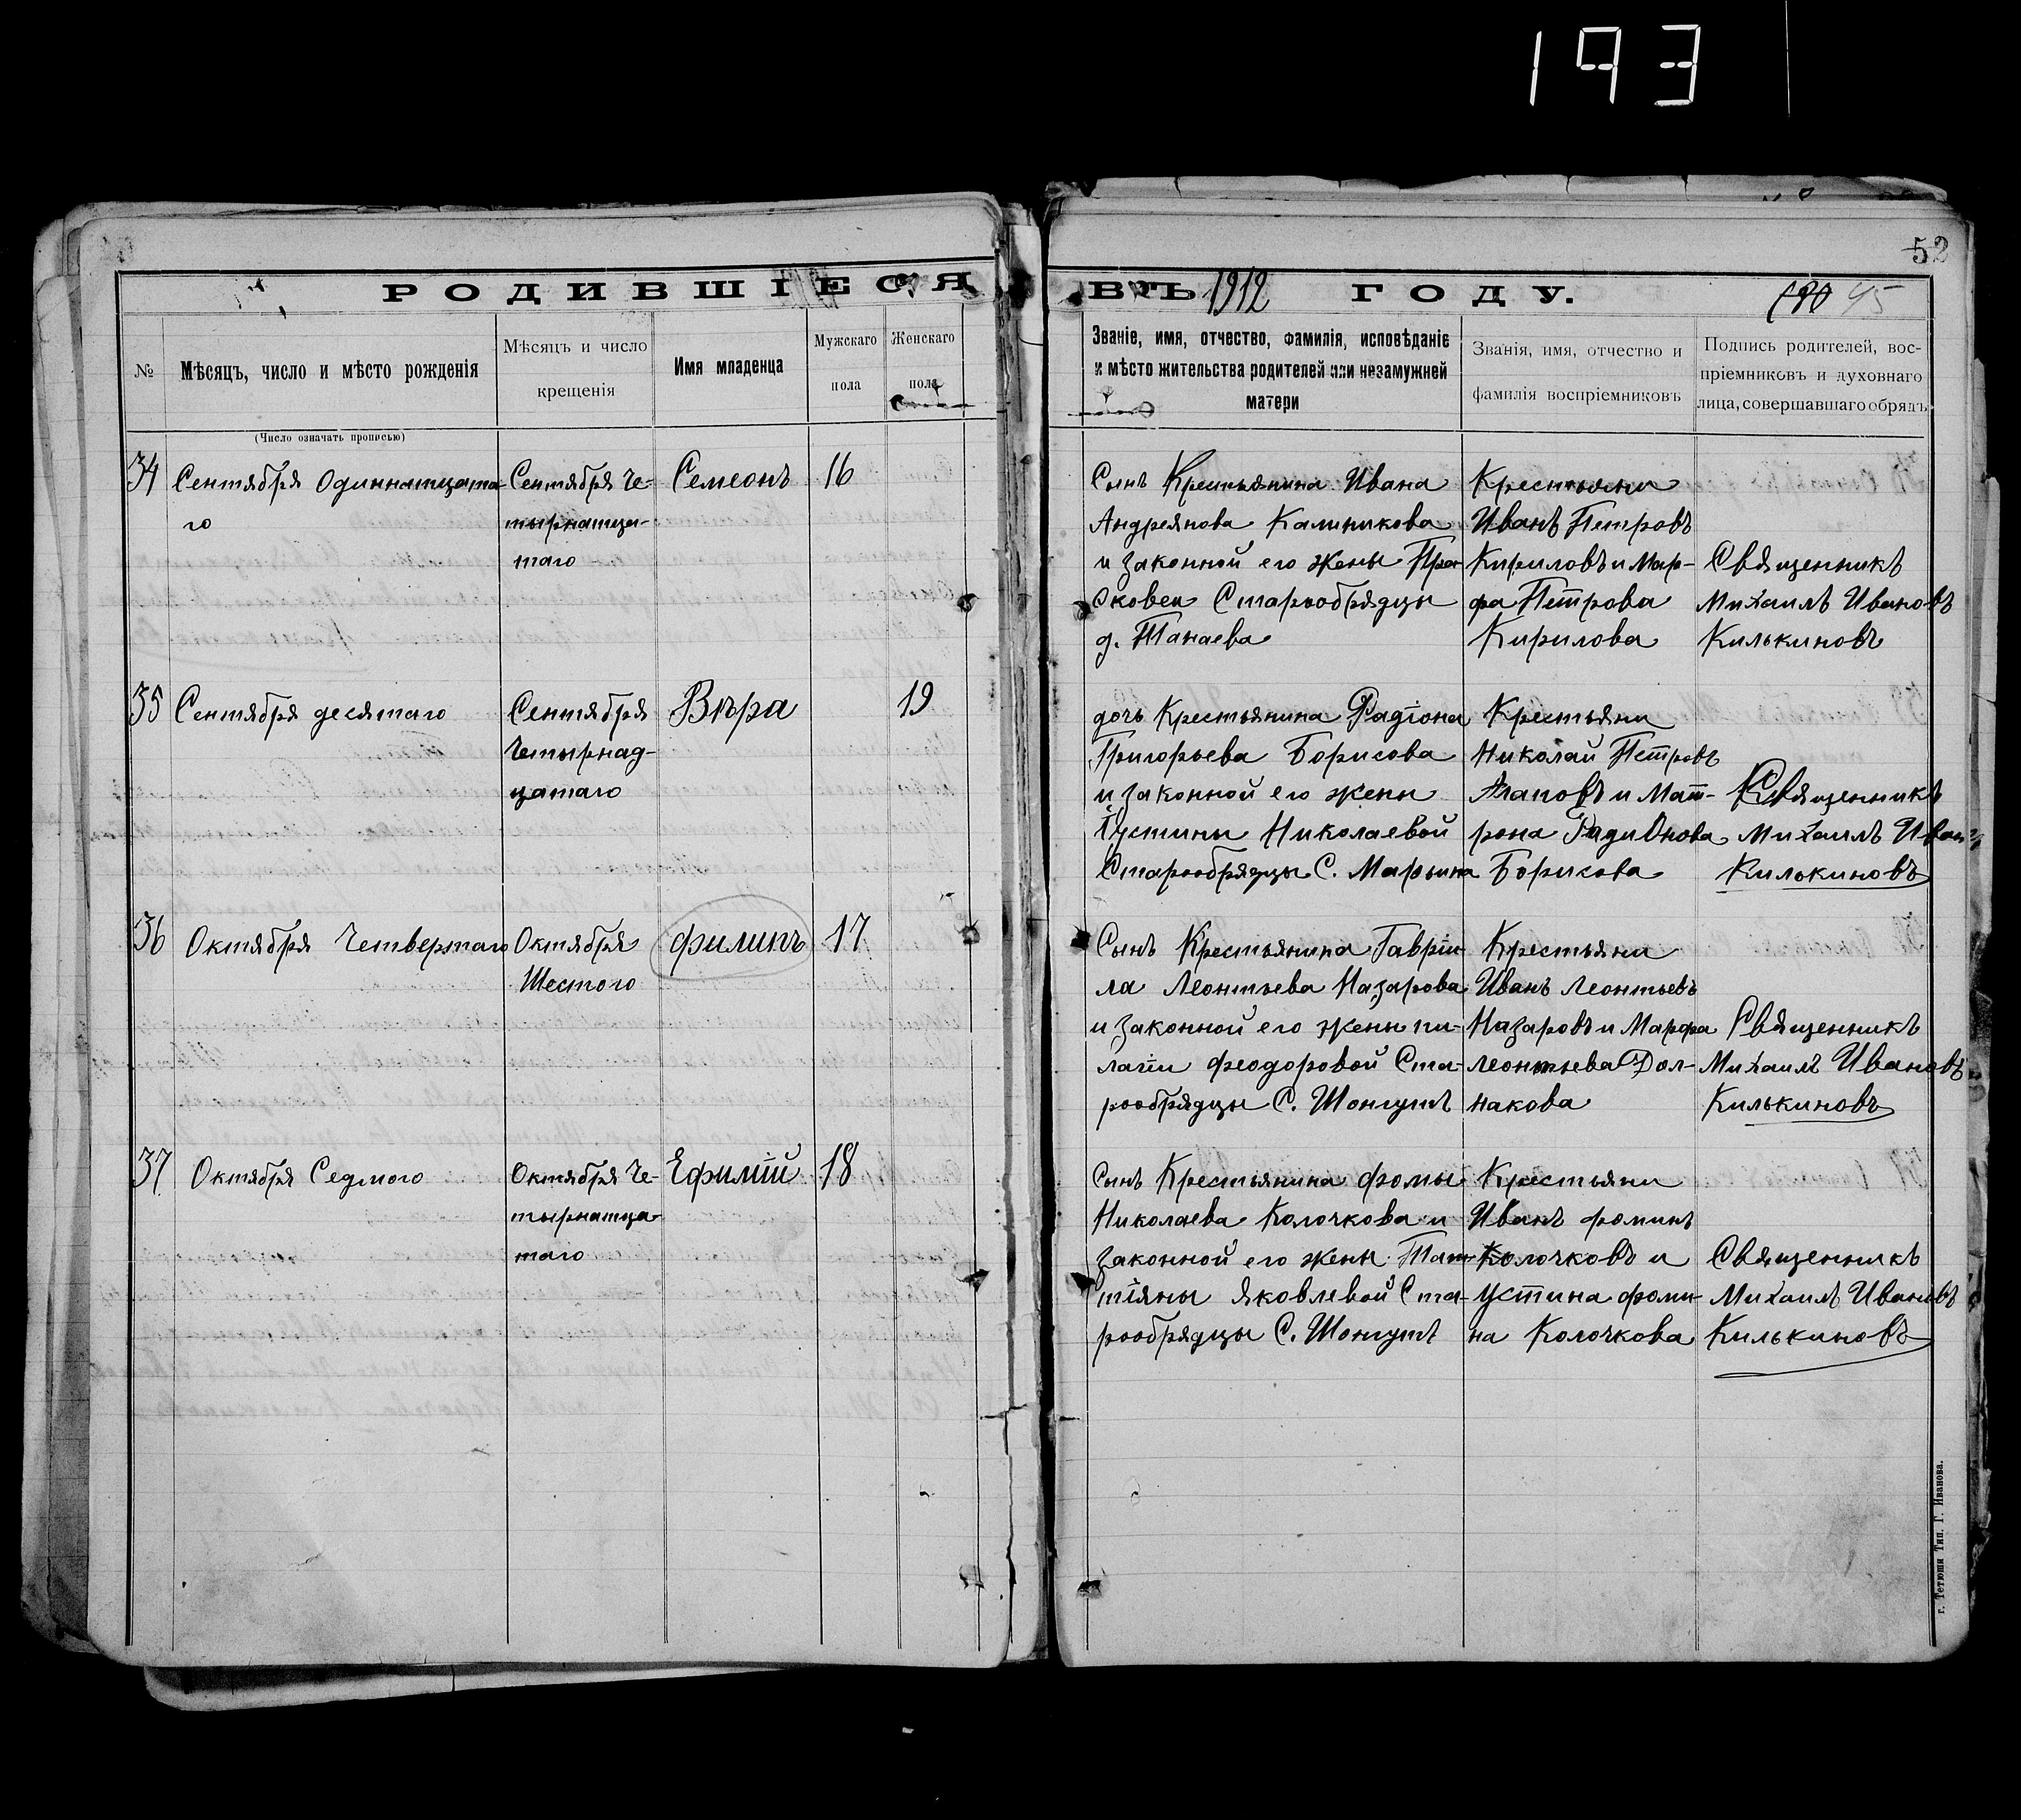 193
52
РОДИВШІЕСЯ
ВЪ 1912 ГОДУ.
180 45
№
Мѣсяцъ, число и мѣсто рожденія
Мѣсяцъ и число
крещенія
Имя младенца
Мужскаго
пола
Женскаго
пола
Званіе, имя, отчество, фамилія, исповѣданіе
и мѣсто жительства родителей или незамужней
матери
Званія, имя, отчество и
фамилія воспріемниковъ
Подпись родителей, вос-
пріемниковъ и духовнаго
лица, совершавшаго обрядъ
(Число означать прописью)
34
Сентября Одиннатцата-
го
Сентября Че-
тырнатца-
таго
Семеонъ
16
Сынъ Крестьянина Ивана
Андреянова Калинникова
и законной его жены Пра-
сковеи Старообрядцы
д. Танаева
Крестьяни
Иванъ Петровъ
Кириловъ и Мар-
фа Петрова
Кирилова
Священникъ
Михаилъ Ивановъ
Килькиновъ
35
Сентября десятаго
Сентября
Четырнад-
цатаго
Вѣра
19
дочь Крестьянина Радіона
Григорьева Борисова
и законной его жены
Іустины Николаевой
Старообрядцы С. Марьина
Крестьяни
Николай Петровъ
Агаповъ и Мат-
рона Радионова
Борисова
Священникъ
Михаилъ Иванов
Килькиновъ
36
Октября Четвертаго
Октября
Шестого
Филипъ
17
Сынъ Крестьянина Гавріи-
ла Леонтьева Назарова
и законной его жены пи-
лагіи феодоровой Ста-
рообрядцы С. Шонгутъ
Крестьяни
Иванъ Леонтьевъ
Назаровъ и Марфа
Леонтьева Дол-
накова
Священникъ
Михаилъ Ивановъ
Килькиновъ
37
Октября Седмого
Октября Че-
тырнатца-
таго
Ефимій
18
Сынъ Крестьянина фомы
Николаева Колочкова и
законной его жены Тат-
тіяны Яковлевой Ста-
рообрядцы С. Шонгутъ
Крестьяни
Иванъ фоминъ
Колочковъ и
Устина фоми-
на Колочкова
Священникъ
Михаилъ Ивановъ
Килькиновъ
г. Тетюши Тип. Г. Иванова.